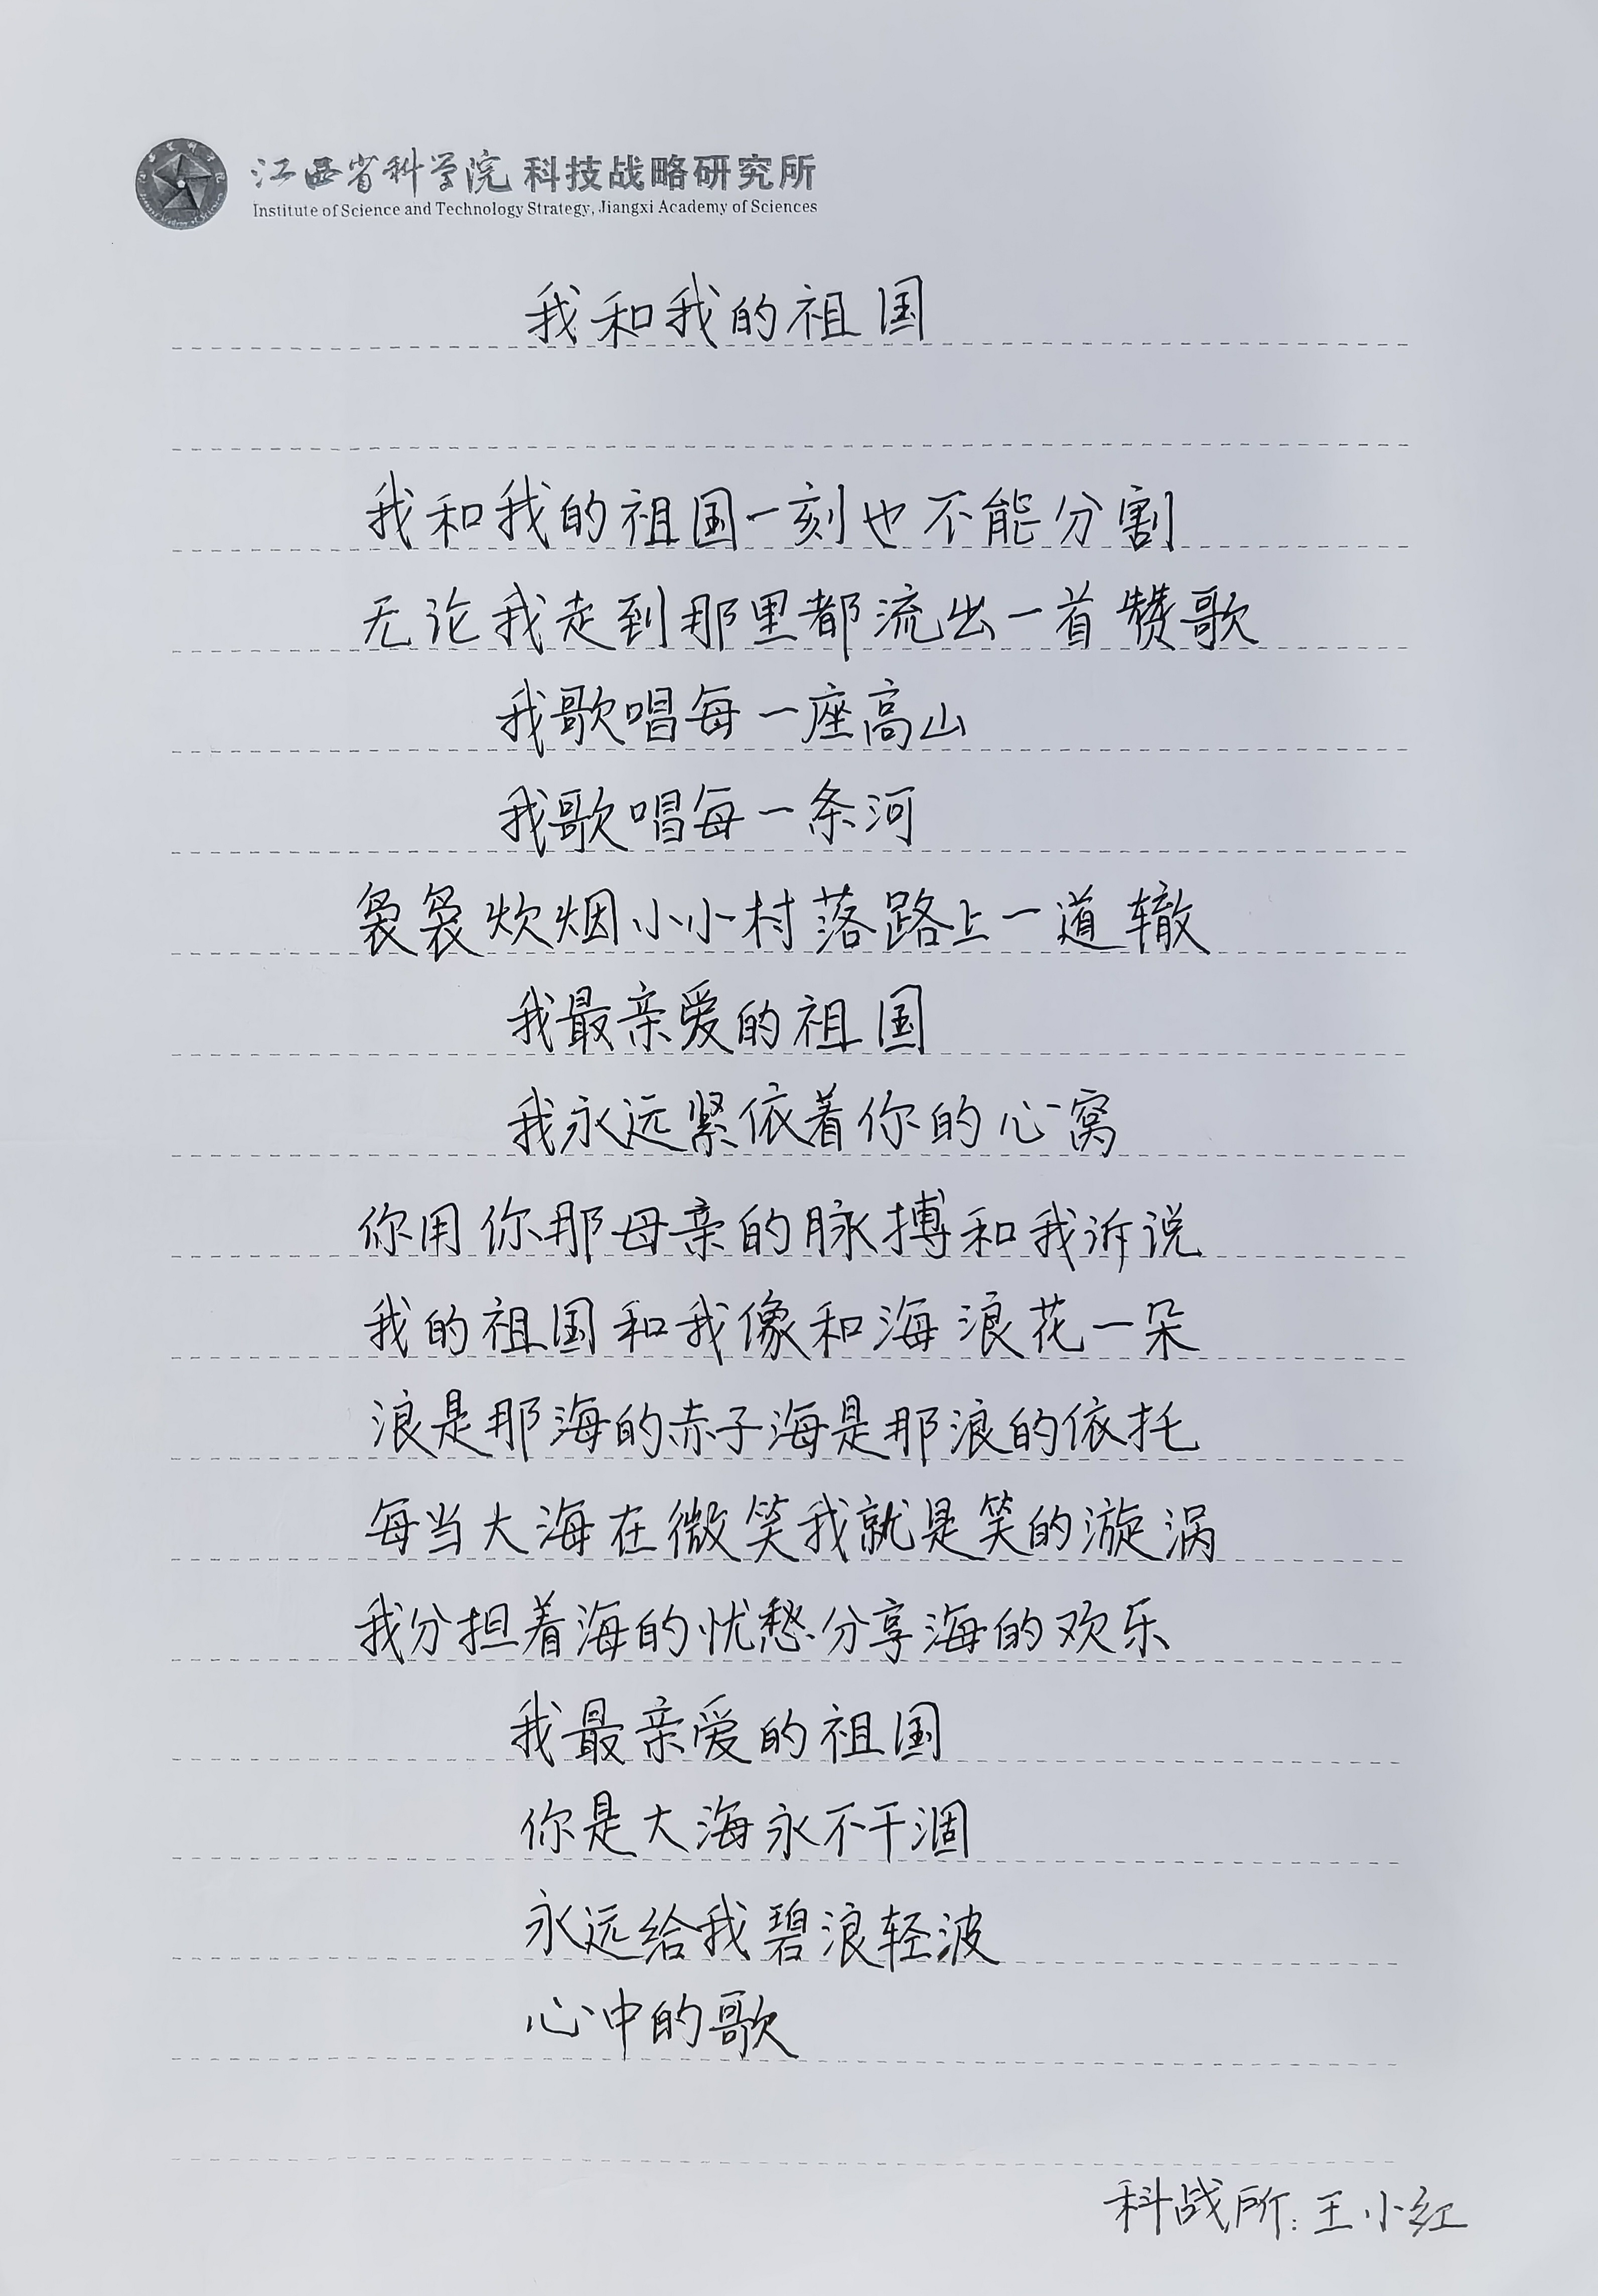 江西省科学院 科技战略研究所
Institute of Science and Technology Strategy, Jiangxi Academy of Sciences
我和我的祖国
我和我的祖国一刻也不能分割
无论我走到那里都流出一首赞歌
我歌唱每一座高山
我歌唱每一条河
袅袅炊烟小小村落路上一道辙
我最亲爱的祖国
我永远紧依着你的心窝
你用你那母亲的脉搏和我诉说
我的祖国和我像和海浪花一朵
浪是那海的赤子海是那浪的依托
每当大海在微笑我就是笑的漩涡
我分担着海的忧愁分享海的欢乐
我最亲爱的祖国
你是大海永不干涸
永远给我碧浪轻波
心中的歌
科战所:王小红